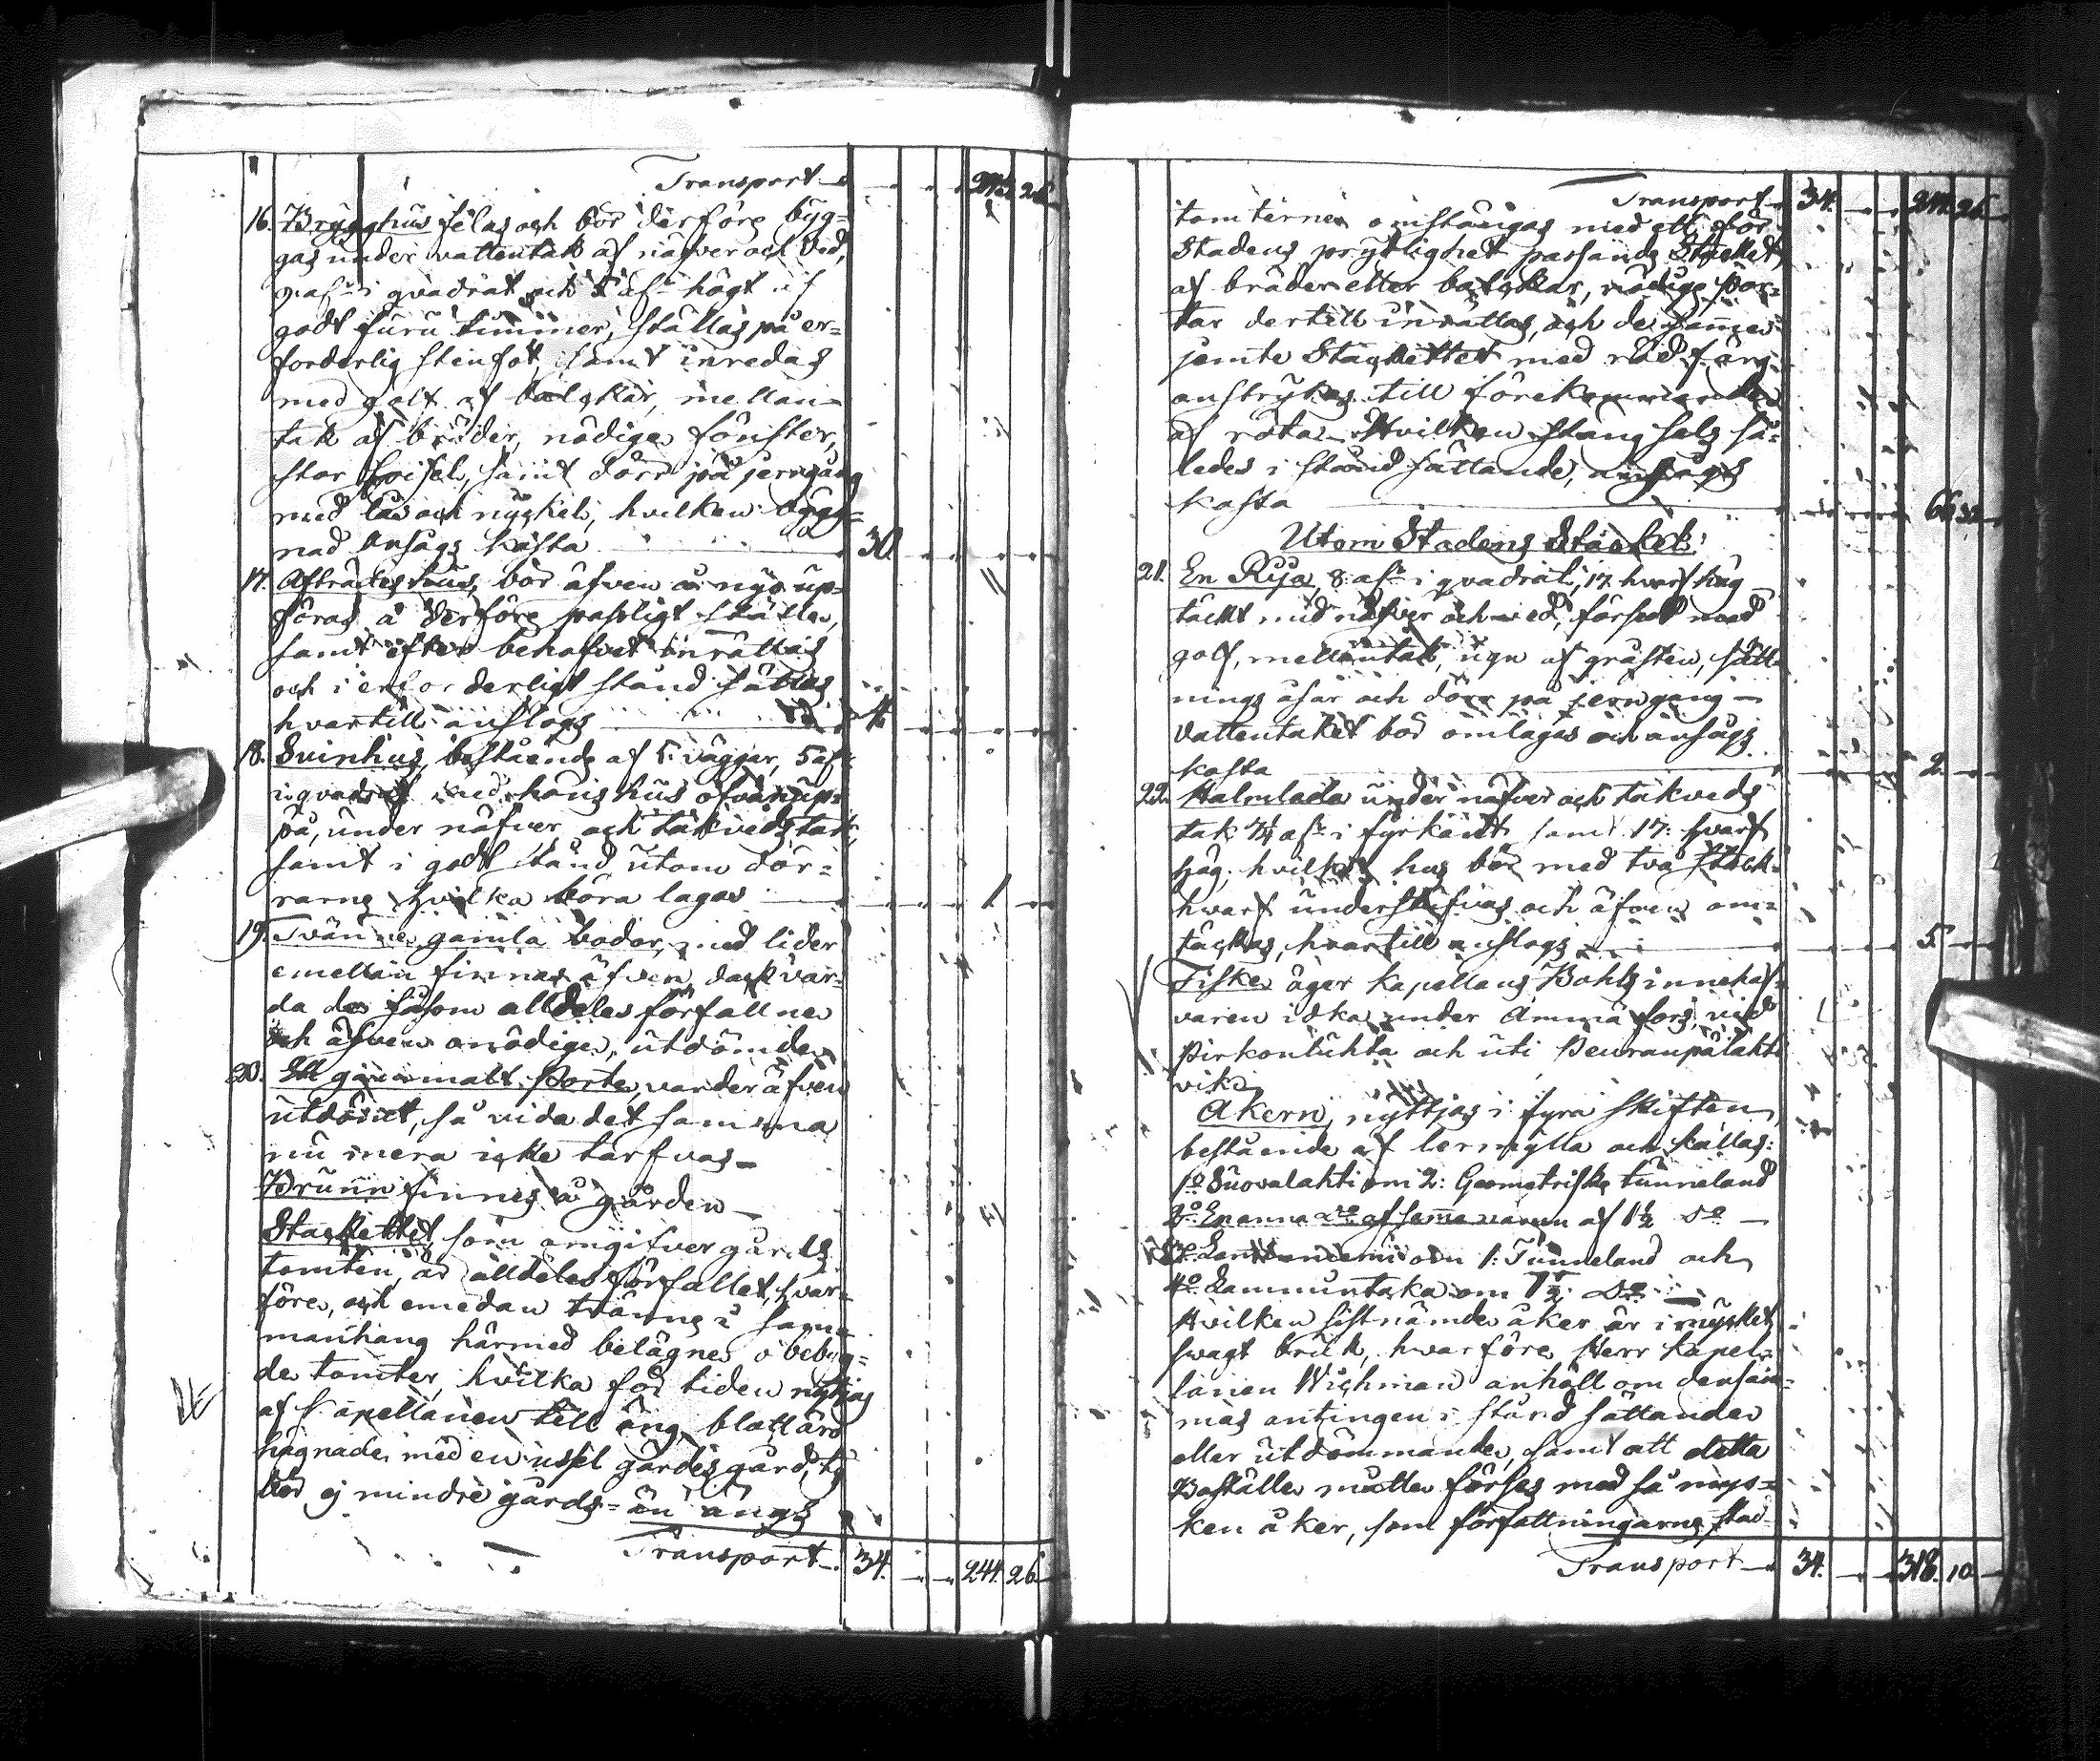 Transport 26
16. Brygghus felas och bör derföre byg=
gas under vattentak af näfver och Ved,
i qvadrat och högt af
godt furu timmer, ställas på er=
forderlig stenfot, samt inredas
med golf af balkar, mellan=
tak af bräder, nödige fönster,
stor spisel, samt dörr på jerngång
med lås och nyckel, hvilken bygg=
nad ansågs kosta 30.
17. Afträdeshus, bör äfven å nyo up=
föras å derföre passligt ställe,
samt efter behofvet inrättas
och i erforderligt stånd sättas
hvartill anslogs 4.
18. Svinhus, bestående af 5 väggar, 5 aln
i qvadrat med hönshus ofvanup=
på, under näfver och takvedstak,
samt i godt stånd utom dör=
rarne hvilka böra lagas 1.
19. Tvänne gamla bodar, med lider
emellan finnas äfven, dock var=
da de såsom alldeles förfallne
och äfven onödige, utdömde
20. Ett gammalt Porte, varder äfven
utdömt, så vida det samma
nu mera icke tarfvas
Brunn finnes å gården
Stackettet, som omgifver gårds
tomten, är alldeles förfallet, hvar=
före, och emedan tvänne i sam=
manhang härmed belägne obebyg=
de tomter, hvilka för tiden nyttjas
af Capellanen till äng, blott äro
hägnade med en ussel gärdesgård, ty
bör ej mindre gårds= än ängs
Transport 34. 244. 26.
Transport 34. 244. 26.
tomterne omstängas med ett för
Stadens prydlighet passande Stacket,
af bräder eller balkar, nödige Por=
tar dertill inrättas, och desamme
jemte Stackettet med röd färg
anstrykas till förekommande
af röta. Hvilken stängsels så=
ledes i stånd sättande, ansågs
kosta 66
Utom Stadens Stacket:
21. En Ria, 8 aln i qvadrat, 17 hvarf hög
täckt med näfver och ved, försedd med
golf, mellantak, ugn af gråsten, sätt=
nings åsar och dörr på jerngång
Vattentaket bör omlagas och ansågs
kosta 2.
22. Halmlada under näfver och takveds
tak 7½ aln i fyrkant samt 17: hvarf
hög, hvilket hus bör med två stock=
hvarf understufvas och äfven om=
täckas, hvartill anslogs 5.
Fiske äger kapellans Bohls innehaf=
varen idka under Ämmä fors, vid
Pirkonluhta och uti Peuranpälahti
vik
Åkern, nyttjas i fyra skiften,
bestående af lermylla och kallas:
1:o Suovalahti om 2: Geometriske tunneland
2:o En annan af samma namn af 1½ d:o
3:o om 1: Tunneland och
4:o Lammuntaka om 1½ d:o
Hvilken sistnämde åker är i mycket
svagt bruk, hvarföre Herr kapel=
lanen Wichman anhöll om densam=
mas antingen i stånd sättande
eller utdömmande, samt att detta
Boställe måtte förses med så myc=
ken åker, som författningarne stad=
Transport 34. 318. 10